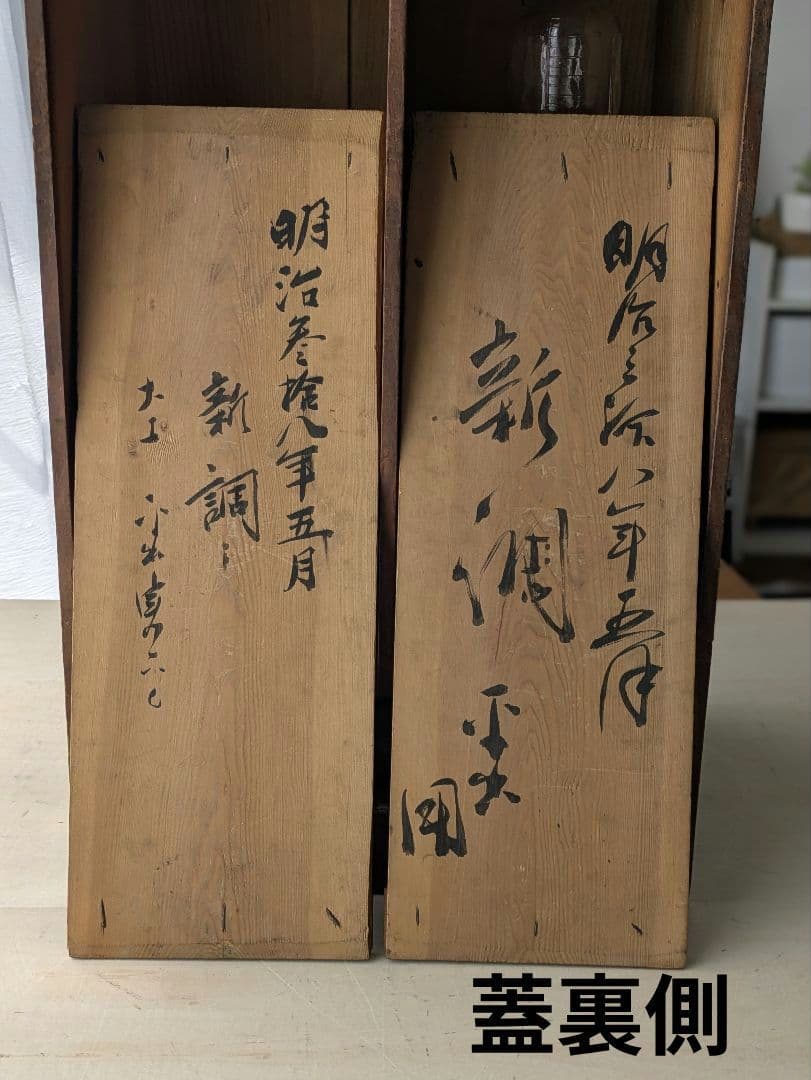 明治三拾八年五月
新調
平出
用
明治参拾八年五月
新調
大工 平出
蓋裏側